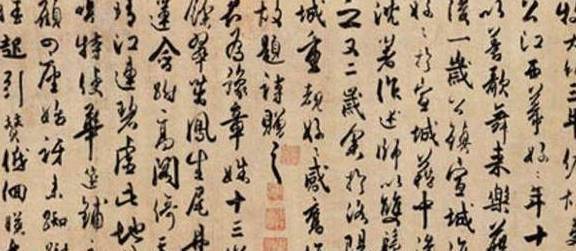 牧大和三年佐故
公江西幕好好年十
以善歌舞來樂籍
後一歲公鎮宣城
好好於宣城籍中後
沈著作述師以雙鬟
之又二歲余於洛陽
城重覩好好感舊傷
故題詩贈之
君為豫章姝十三
餘翠茁鳳生尾丹
蓮含跗高閣倚天
晴江連碧虛此地
唱特使華筵鋪
顧四座始訝來踟
娃起引贊低徊映